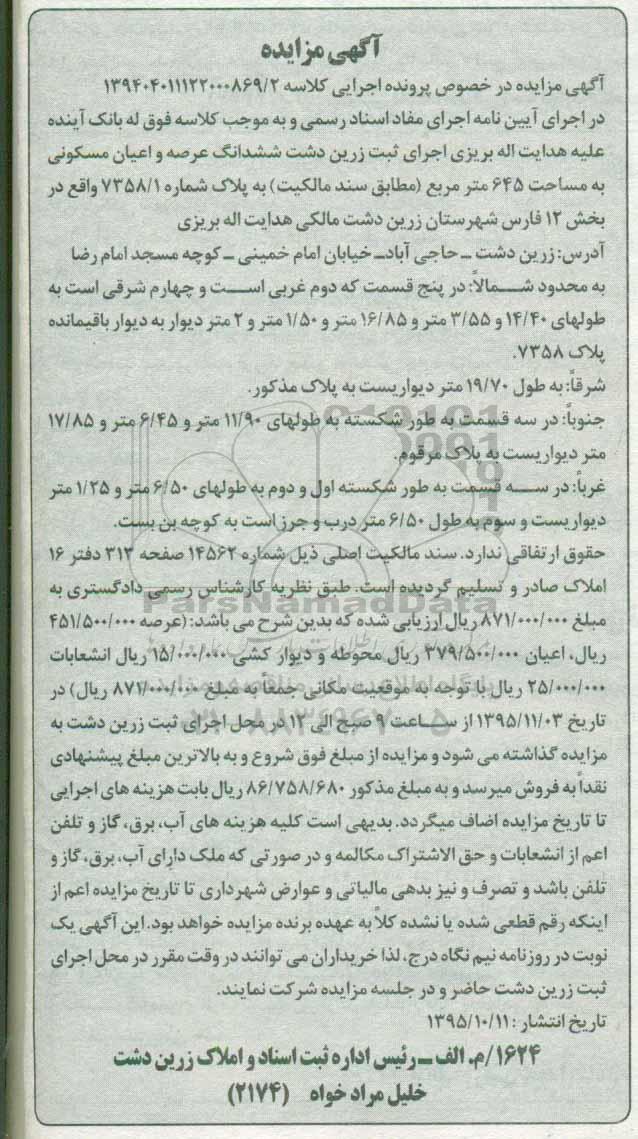 آگهی مزایده
آگهی مزایده در خصوص پرونده اجرایی کلاسه ۱۳۹۴۰۴۰۱۱۱۲۲۰۰۰۸۶۹/۲
در اجرای آیین نامه اجرای مفاد اسناد رسمی و به موجب کلاسه فوق له بانک آینده
علیه هدایت اله بریزی اجرای ثبت زرین دشت ششدانگ عرصه و اعیان مسکونی
به مساحت ۶۴۵ متر مربع (مطابق سند مالکیت) به پلاک شماره ۷۳۵۸/۱ واقع در
بخش ۱۲ فارس شهرستان زرین دشت مالکی هدایت اله بریزی
آدرس: زرین دشت ـ حاجی آبادـ خیابان امام خمینی ـ کوچه مسجد امام رضا
به محدود شـمالاً: در پنج قسمت که دوم غربی است و چهارم شرقی است به
طولهای ۱۴/۴۰ و ۳/۵۵ متر و ۱۶/۸۵ متر و ۱/۵۰ متر و ۲ متر دیوار به دیوار باقیمانده
پلاک ۷۳۵۸.
شرقاً: به طول ۱۹/۷۰ متر دیواریست به پلاک مذکور.
جنوباً: در سه قسمت به طور شکسته به طولهای ۱۱/۹۰ متر و ۶/۴۵ متر و ۱۷/۸۵
متر دیواریست به پلاک مرقوم.
غرباً: در سـه قسمت به طور شکسته اول و دوم به طولهای ۶/۵۰ متر و ۱/۲۵ متر
دیواریست و سوم به طول ۶/۵۰ متر درب و جرز است به کوچه بن بست.
حقوق ارتفاقی ندارد. سند مالکیت اصلی ذیل شماره ۱۴۵۶۲ صفحه ۳۱۳ دفتر ۱۶
املاک صادر و تسلیم گردیده است. طبق نظریه کارشناس رسمی دادگستری به
مبلغ ۸۷۱/۰۰۰/۰۰۰ ریال ارزیابی شده که بدین شرح می باشد: (عرصه ۴۵۱/۵۰۰/۰۰۰
ریال، اعیان ۳۷۹/۵۰۰/۰۰۰ ریال محوطه و دیوار کشی ۱۵/۰۰۰/۰۰۰ ریال انشعابات
۲۵/۰۰۰/۰۰۰ ریال با توجه به موقعیت مکانی جمعاً به مبلغ ۸۷۱/۰۰۰/۰۰۰ ریال) در
تاریخ ۱۳۹۵/۱۱/۰۳ از سـاعت ۹ صبح الی ۱۲ در محل اجرای ثبت زرین دشت به
مزایده گذاشته می شود و مزایده از مبلغ فوق شروع و به بالاترین مبلغ پیشنهادی
نقداً به فروش میرسد و به مبلغ مذکور ۸۶/۷۵۸/۶۸۰ ریال بابت هزینه های اجرایی
تا تاریخ مزایده اضاف میگردد. بدیهی است کلیه هزینه های آب، برق، گاز و تلفن
اعم از انشعابات و حق الاشتراک مکالمه و در صورتی که ملک دارای آب، برق، گاز و
تلفن باشد و تصرف و نیز بدهی مالیاتی و عوارض شهرداری تا تاریخ مزایده اعم از
اینکه رقم قطعی شده یا نشده کلاً به عهده برنده مزایده خواهد بود. این آگهی یک
نوبت در روزنامه نیم نگاه درج، لذا خریداران می توانند در وقت مقرر در محل اجرای
ثبت زرین دشت حاضر و در جلسه مزایده شرکت نمایند.
تاریخ انتشار: ۱۳۹۵/۱۰/۱۱
۱۶۲۴/م. الف ـ رئیس اداره ثبت اسناد و املاک زرین دشت
خلیل مراد خواه (۲۱۷۴)
ParsNamadData